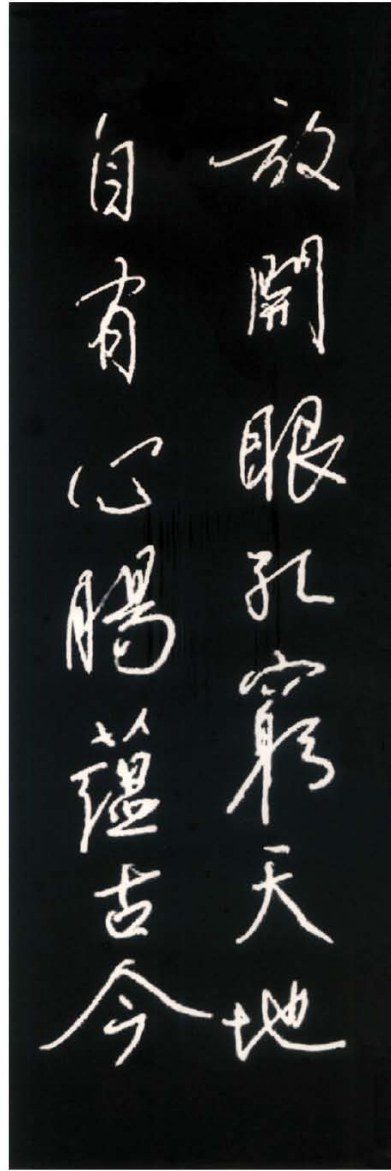 放開眼孔窮天地
自有心腸蘊古今